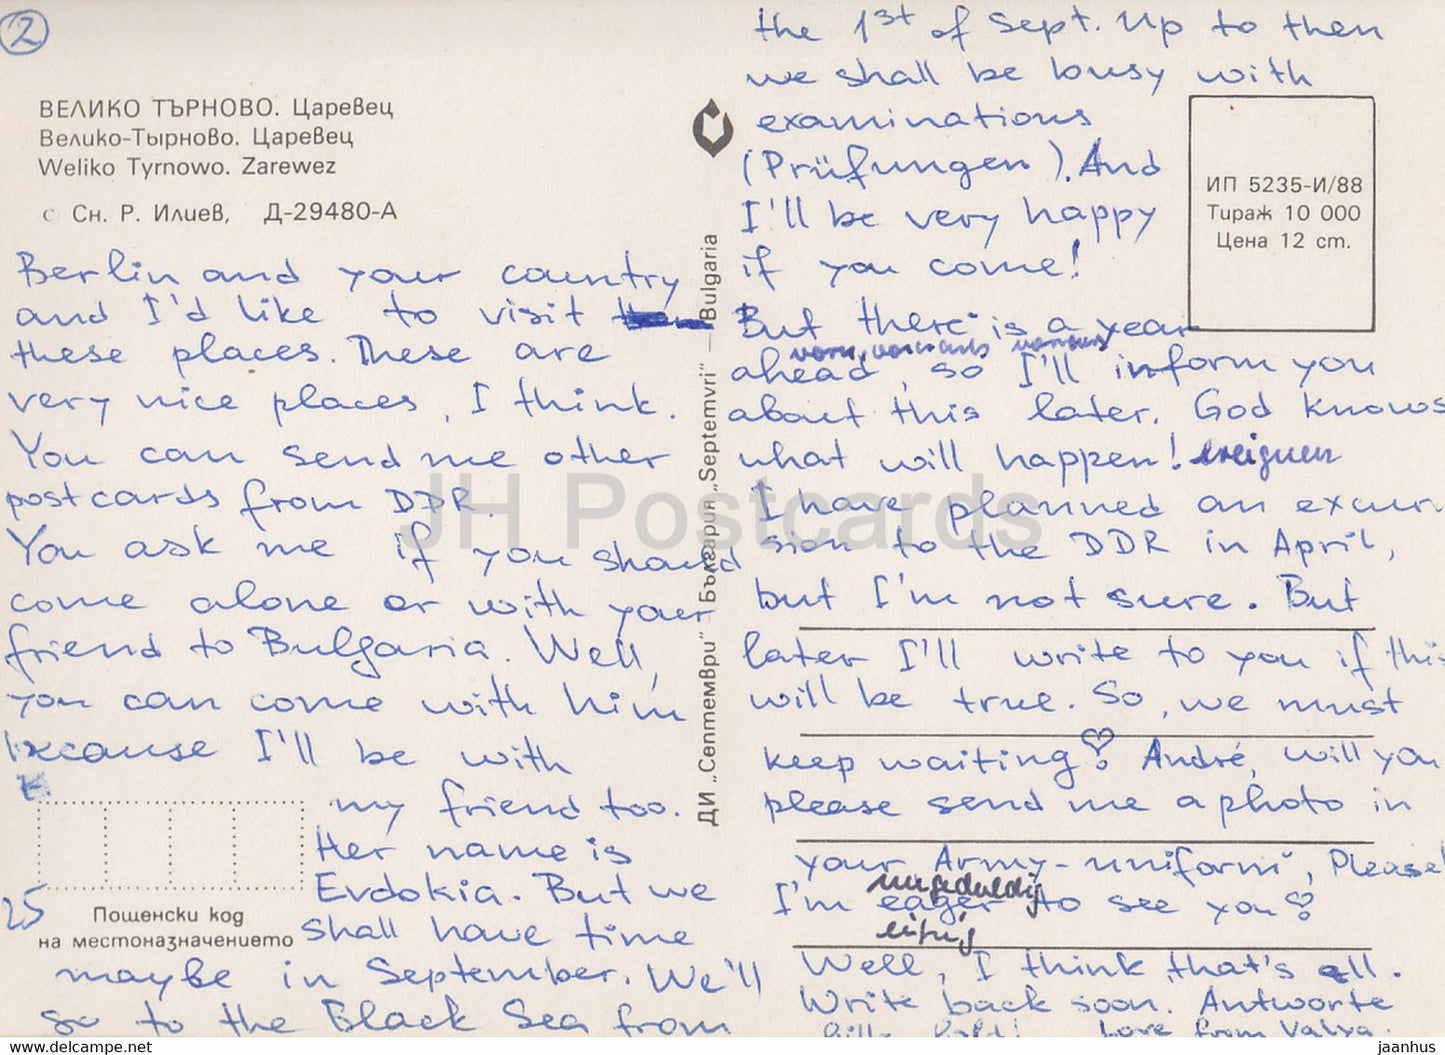 2
ВЕЛИКО ТЪРНОВО. Царевец
Велико-Тырново. Царевец
Weliko Tyrnowo. Zarewez
с Сн. Р. Илиев, Д-29480-А
Berlin and your country
and I'd like to visit
these places. These are
very nice places, I think.
You can send me other
postcards from DDR.
You ask me if you should
come alone or with your
friend to Bulgaria. Well,
you can come with him
because I'll be with
my friend too.
Her name is
Evdokia. But we
shall have time
maybe in September. We'll
go to the Black Sea from
25
Пощенски код
на местоназначението
ДИ „Септември" България „Septemvri" — Bulgaria
the 1st of Sept. Up to then
we shall be busy with
examinations
(Prüfungen). And
I'll be very happy
if you come!
But there is a year
vorn, vorwärts
ahead, so I'll inform you
about this later. God knows
what will happen! ereignen
I have planned an excur
sion to the DDR in April,
but I'm not sure. But
later I'll write to you if this
will be true. So, we must
keep waiting! André, will you
please send me a photo in
your Army-uniform, Please!
ungeduldig
I'm eager to see you!
eifrig
Well, I think that's all.
Write back soon. Antworte
Love from Valya.
ИП 5235-И/88
Тираж 10 000
Цена 12 ст.
JH Postcards
www.delcampe.net
jaanhus